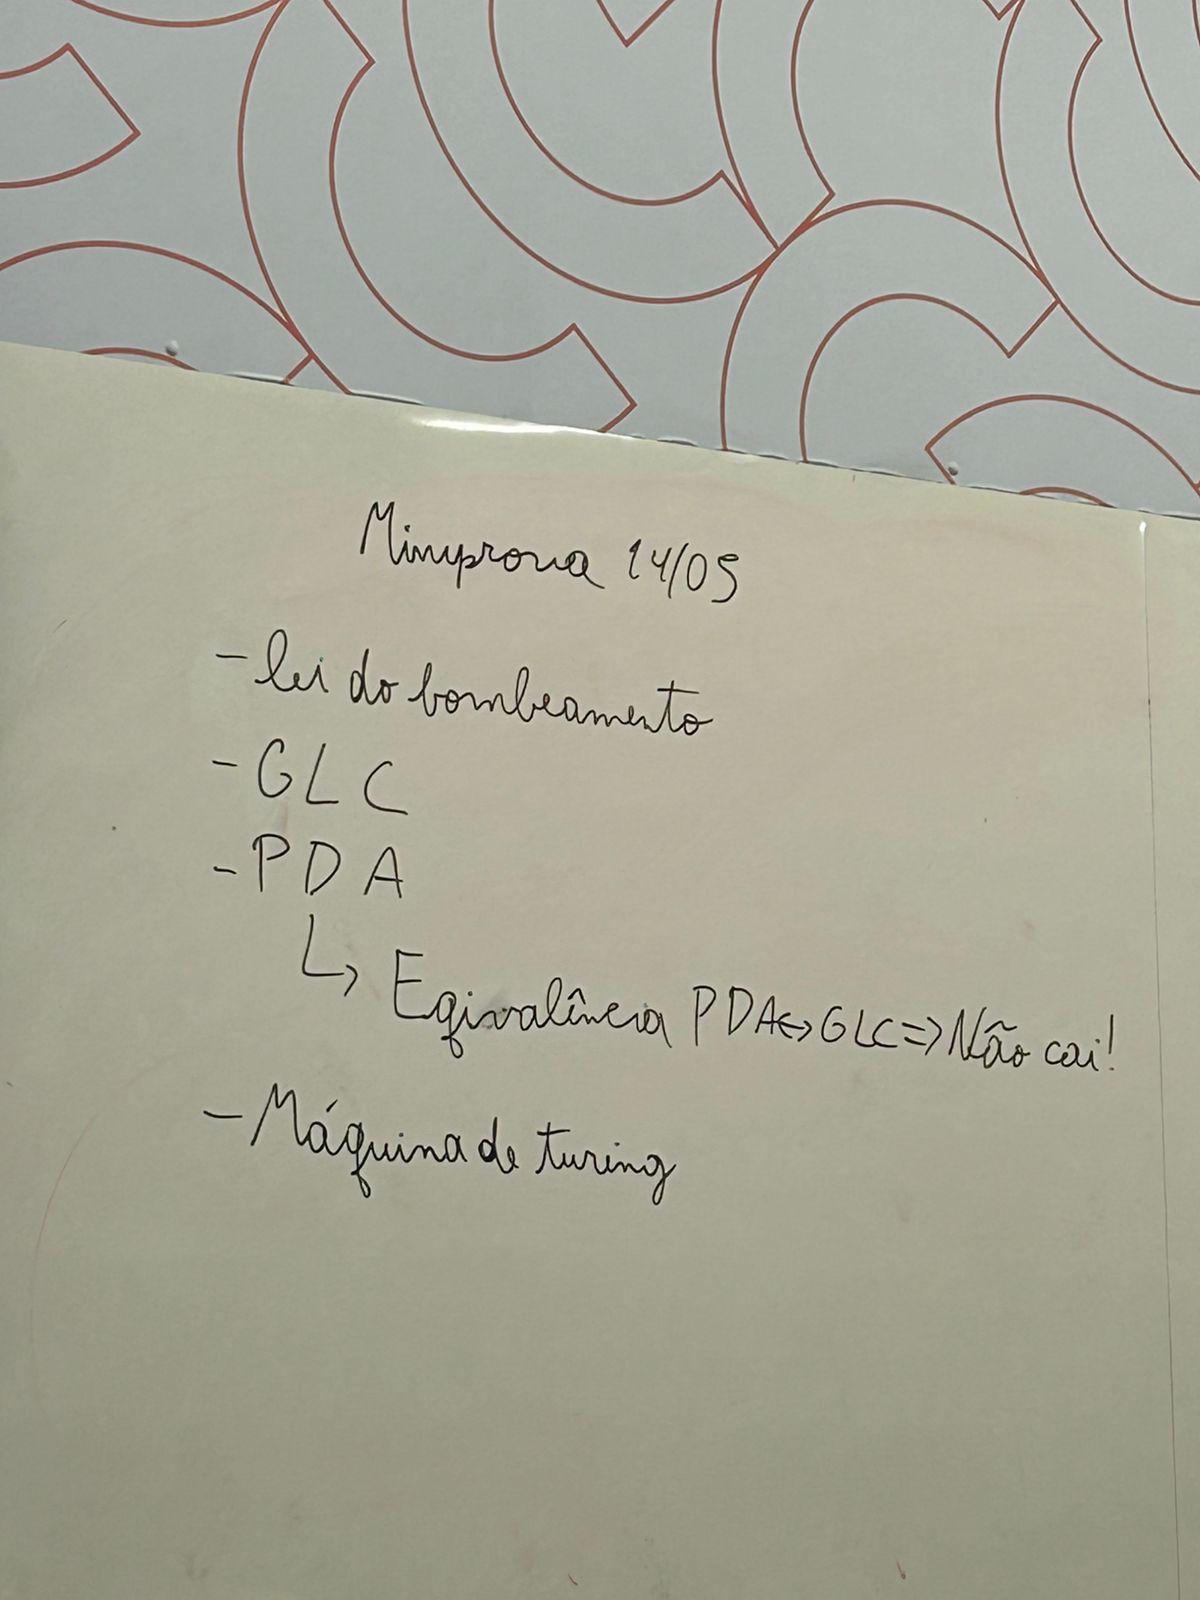 Miniprova 14/05
- lei do bombeamento
- GLC
- PDA
↳ Eqivalência PDA↔GLC⇒Não cai!
- Máquina de turing